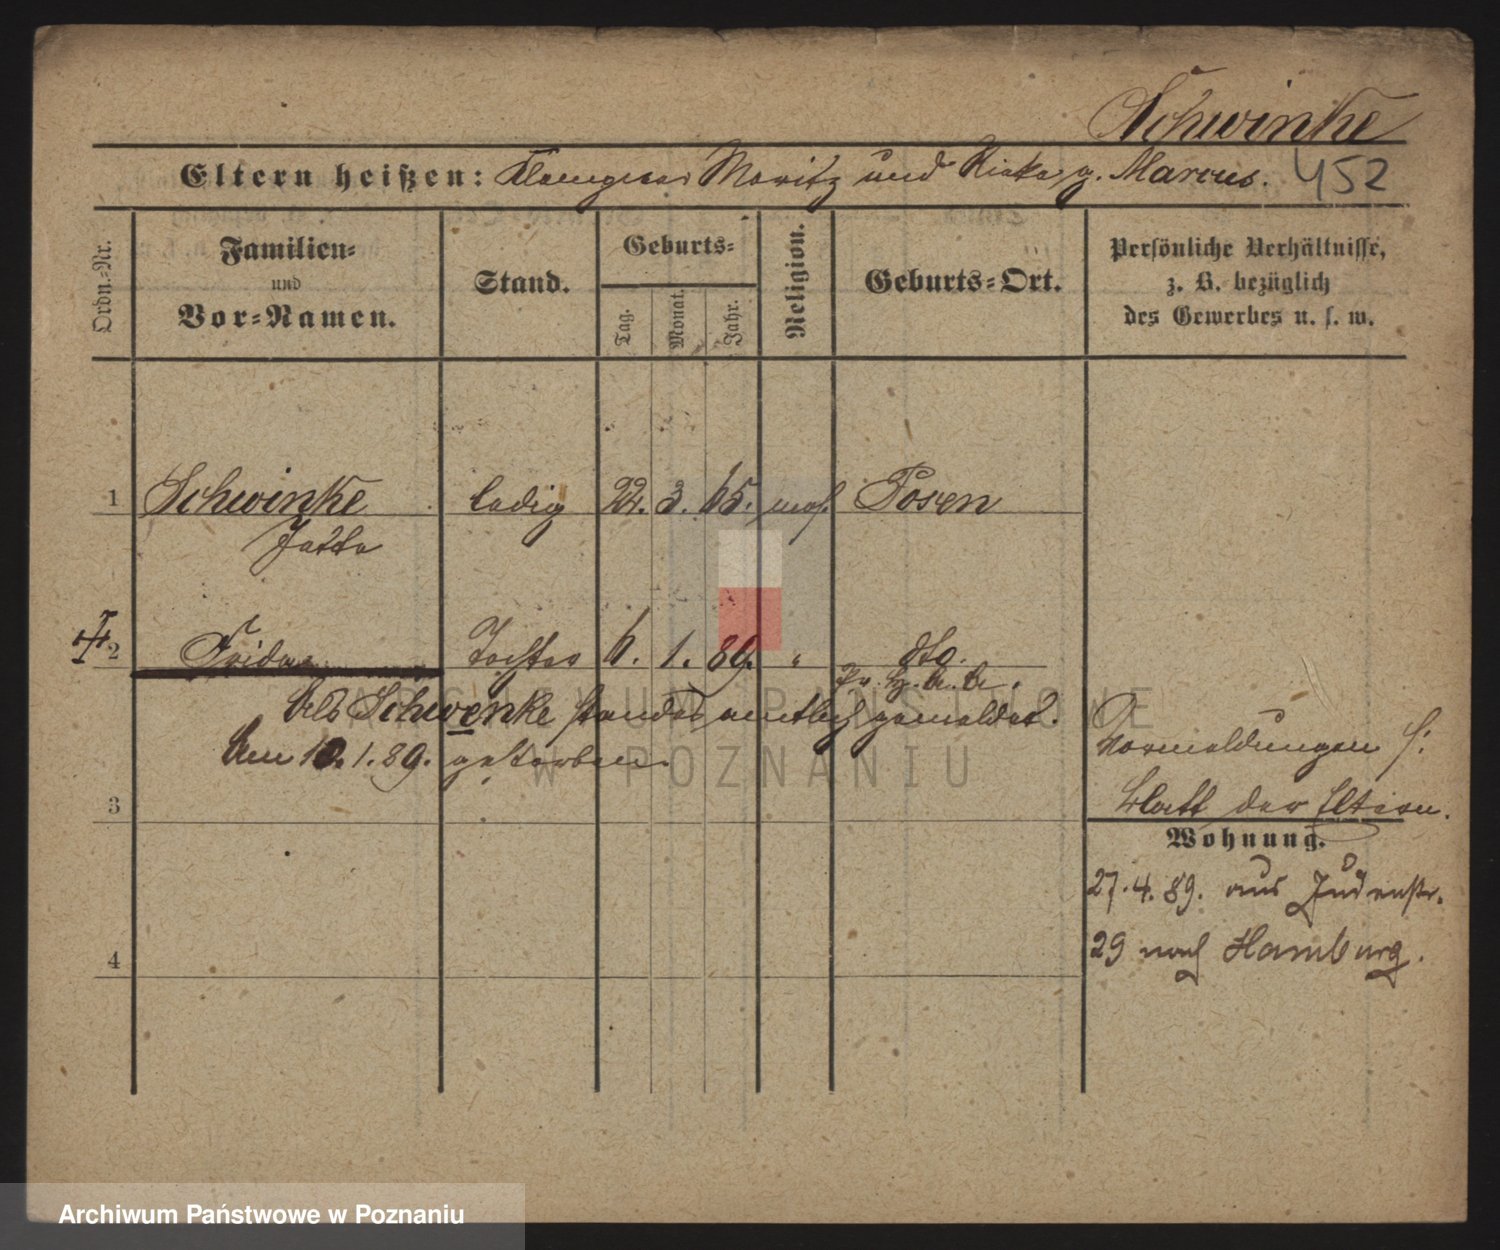 Schwinke
Eltern heißen: Klempner Moritz und Rieke g. Marcus. 452
Ordn.-Nr.
Familien-
und
Vor-Namen.
Stand.
Geburts-
Tag.
Monat.
Jahr.
Religion.
Geburts-Ort.
Persönliche Verhältnisse,
z. B. bezüglich
des Gewerbes u. s. w.
1 Schwinke ledig 22. 3. 65. mos. Posen
Jette
2 Frida Tochter 6. 1. 89. " dto.
Als Schwenke standesamtlich gemeldet.
Am 10. 1. 89. gestorben.
Vormeldungen s:
Blatt der Eltern.
3
Wohnung.
27. 4. 89. aus Judenstr.
29 nach Hamburg.
4
ARCHIWUM PAŃSTWOWE
W POZNANIU
Archiwum Państwowe w Poznaniu